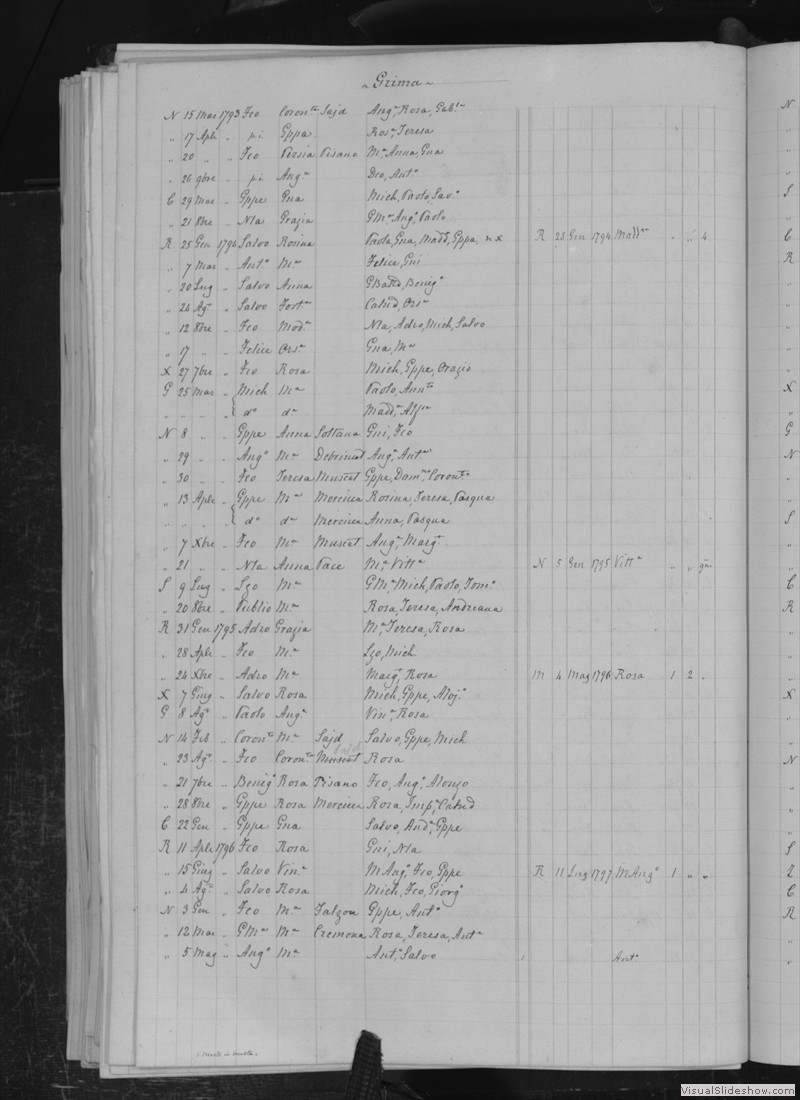 ~ Grima ~
N 15 Mar 1793 Fco Coronta Sajd Anga, Rosa, Gabla
" 17 Aple " pi Gppa Rosa, Teresa
" 20 " " Fco Persia Pisano Ma, Anna, Gna
" 26 9bre " pi Anga Deo, Anto
C 29 Mar " Gppe Gna Mich, Paolo, Sava
" 21 8bre " Nla Grazia GMa, Anga, Paolo
R 25 Gen 1794 Salvo Rosina Paola, Gna, Madd, Gppa, nx R 28 Gen 1794 Madda " " 4
" 7 Mar " Anto Ma Felice, Gni
" 20 Lug " Salvo Anna GBatta, Benigo
" 24 Ago " Salvo Forta Catud, Orsa
" 12 8bre " Fco Moda Nla, Adro, Mich, Salvo
" 17 " " Felice Orsa Gna, Ma
X 27 7bre " Fco Rosa Mich, Gppe, Orazio
G 25 Mar " Mich Ma Paolo, Annta
" " " " { do do Madda, Alfsa
N 8 " " Gppe Anna Soltana Gni, Fco
" 29 " " Ango Ma Debrincat Anga, Anta
" 30 " " Fco Teresa Muscat Gppe, Doma, Coronta
" 13 Aple " Gppe Ma Mercieca Rosina, Teresa, Pasqua
" " " " { do do Mercieca Anna, Pasqua
" 7 Xbre " Fco Ma Muscat Anga, Marga
" 21 " " Nla Anna Pace Ma, Vitta N 5 Gen 1795 Vitta " " gni
S 9 Lug " Lzo Ma GMa, Mich, Paolo, Toma
" 20 8bre " Publio Ma Rosa, Teresa, Andreana
R 31 Gen 1795 Adro Grazia Ma, Teresa, Rosa
" 28 Aple " Fco Ma Lzo, Mich
" 24 Xbre " Adro Ma Marga, Rosa M 4 Mag 1796 Rosa 1 2 "
X 7 Giug " Salvo Rosa Mich, Gppe, Aloja
G 8 Ago " Paolo Anga Vina, Rosa
N 14 Feb " Coronto Ma Sajd Salvo, Gppe, Mich
Sajd
" 23 Ago " Fco Coronta Muscat Rosa
" 21 7bre " Benigo Rosa Pisano Fco, Anga, Alonzo
" 28 8bre " Gppe Rosa Mercieca Rosa, Impa, Catud
C 22 Gen " Gppe Gna Salvo, Anda, Gppe
R 11 Aple 1796 Fco Rosa Gni, Nla
" 15 Giug " Salvo Vina MAnga, Fco, Gppe R 11 Lug 1797 MAnga 1 " "
" 4 Ago " Salvo Rosa Mich, Fco, Giorgo
N 3 Gen " Fco Ma Falzon Gppe, Anto
" 12 Mar " GMa Ma Cremona Rosa, Teresa, Anta
" 5 Mag " Ango Ma Anto, Salvo 1 Anto
VisualSlideshow.com